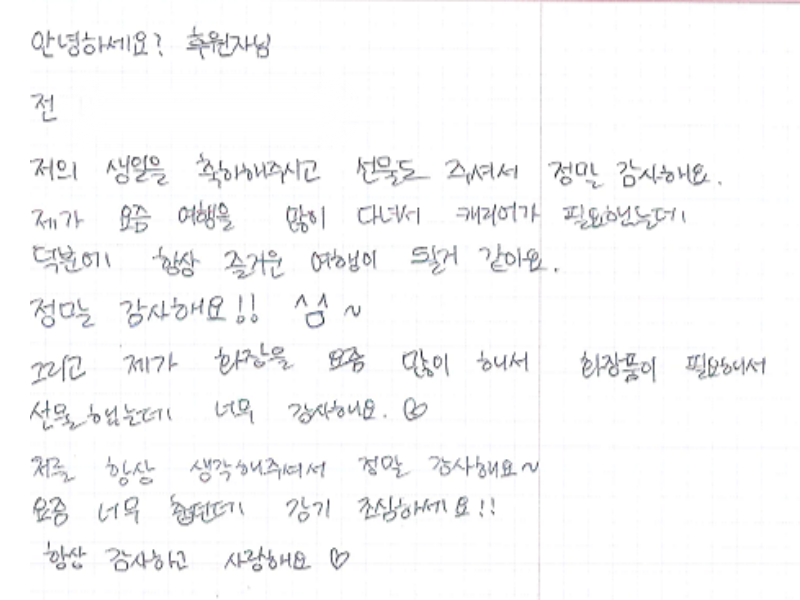 안녕하세요? 후원자님
전
저의 생일을 축하해주시고 선물도 주셔서 정말 감사해요.
제가 요즘 여행을 많이 다녀서 캐리어가 필요했는데
덕분에 항상 즐거운 여행이 될거 같아요.
정말 감사해요!! ^^ ~
그리고 제가 화장을 요즘 많이 해서 화장품이 필요해서
선물 했는데 너무 감사해요. ♡
저를 항상 생각해주셔서 정말 감사해요~
요즘 너무 춥던데 감기 조심하세요!!
항상 감사하고 사랑해요 ♡